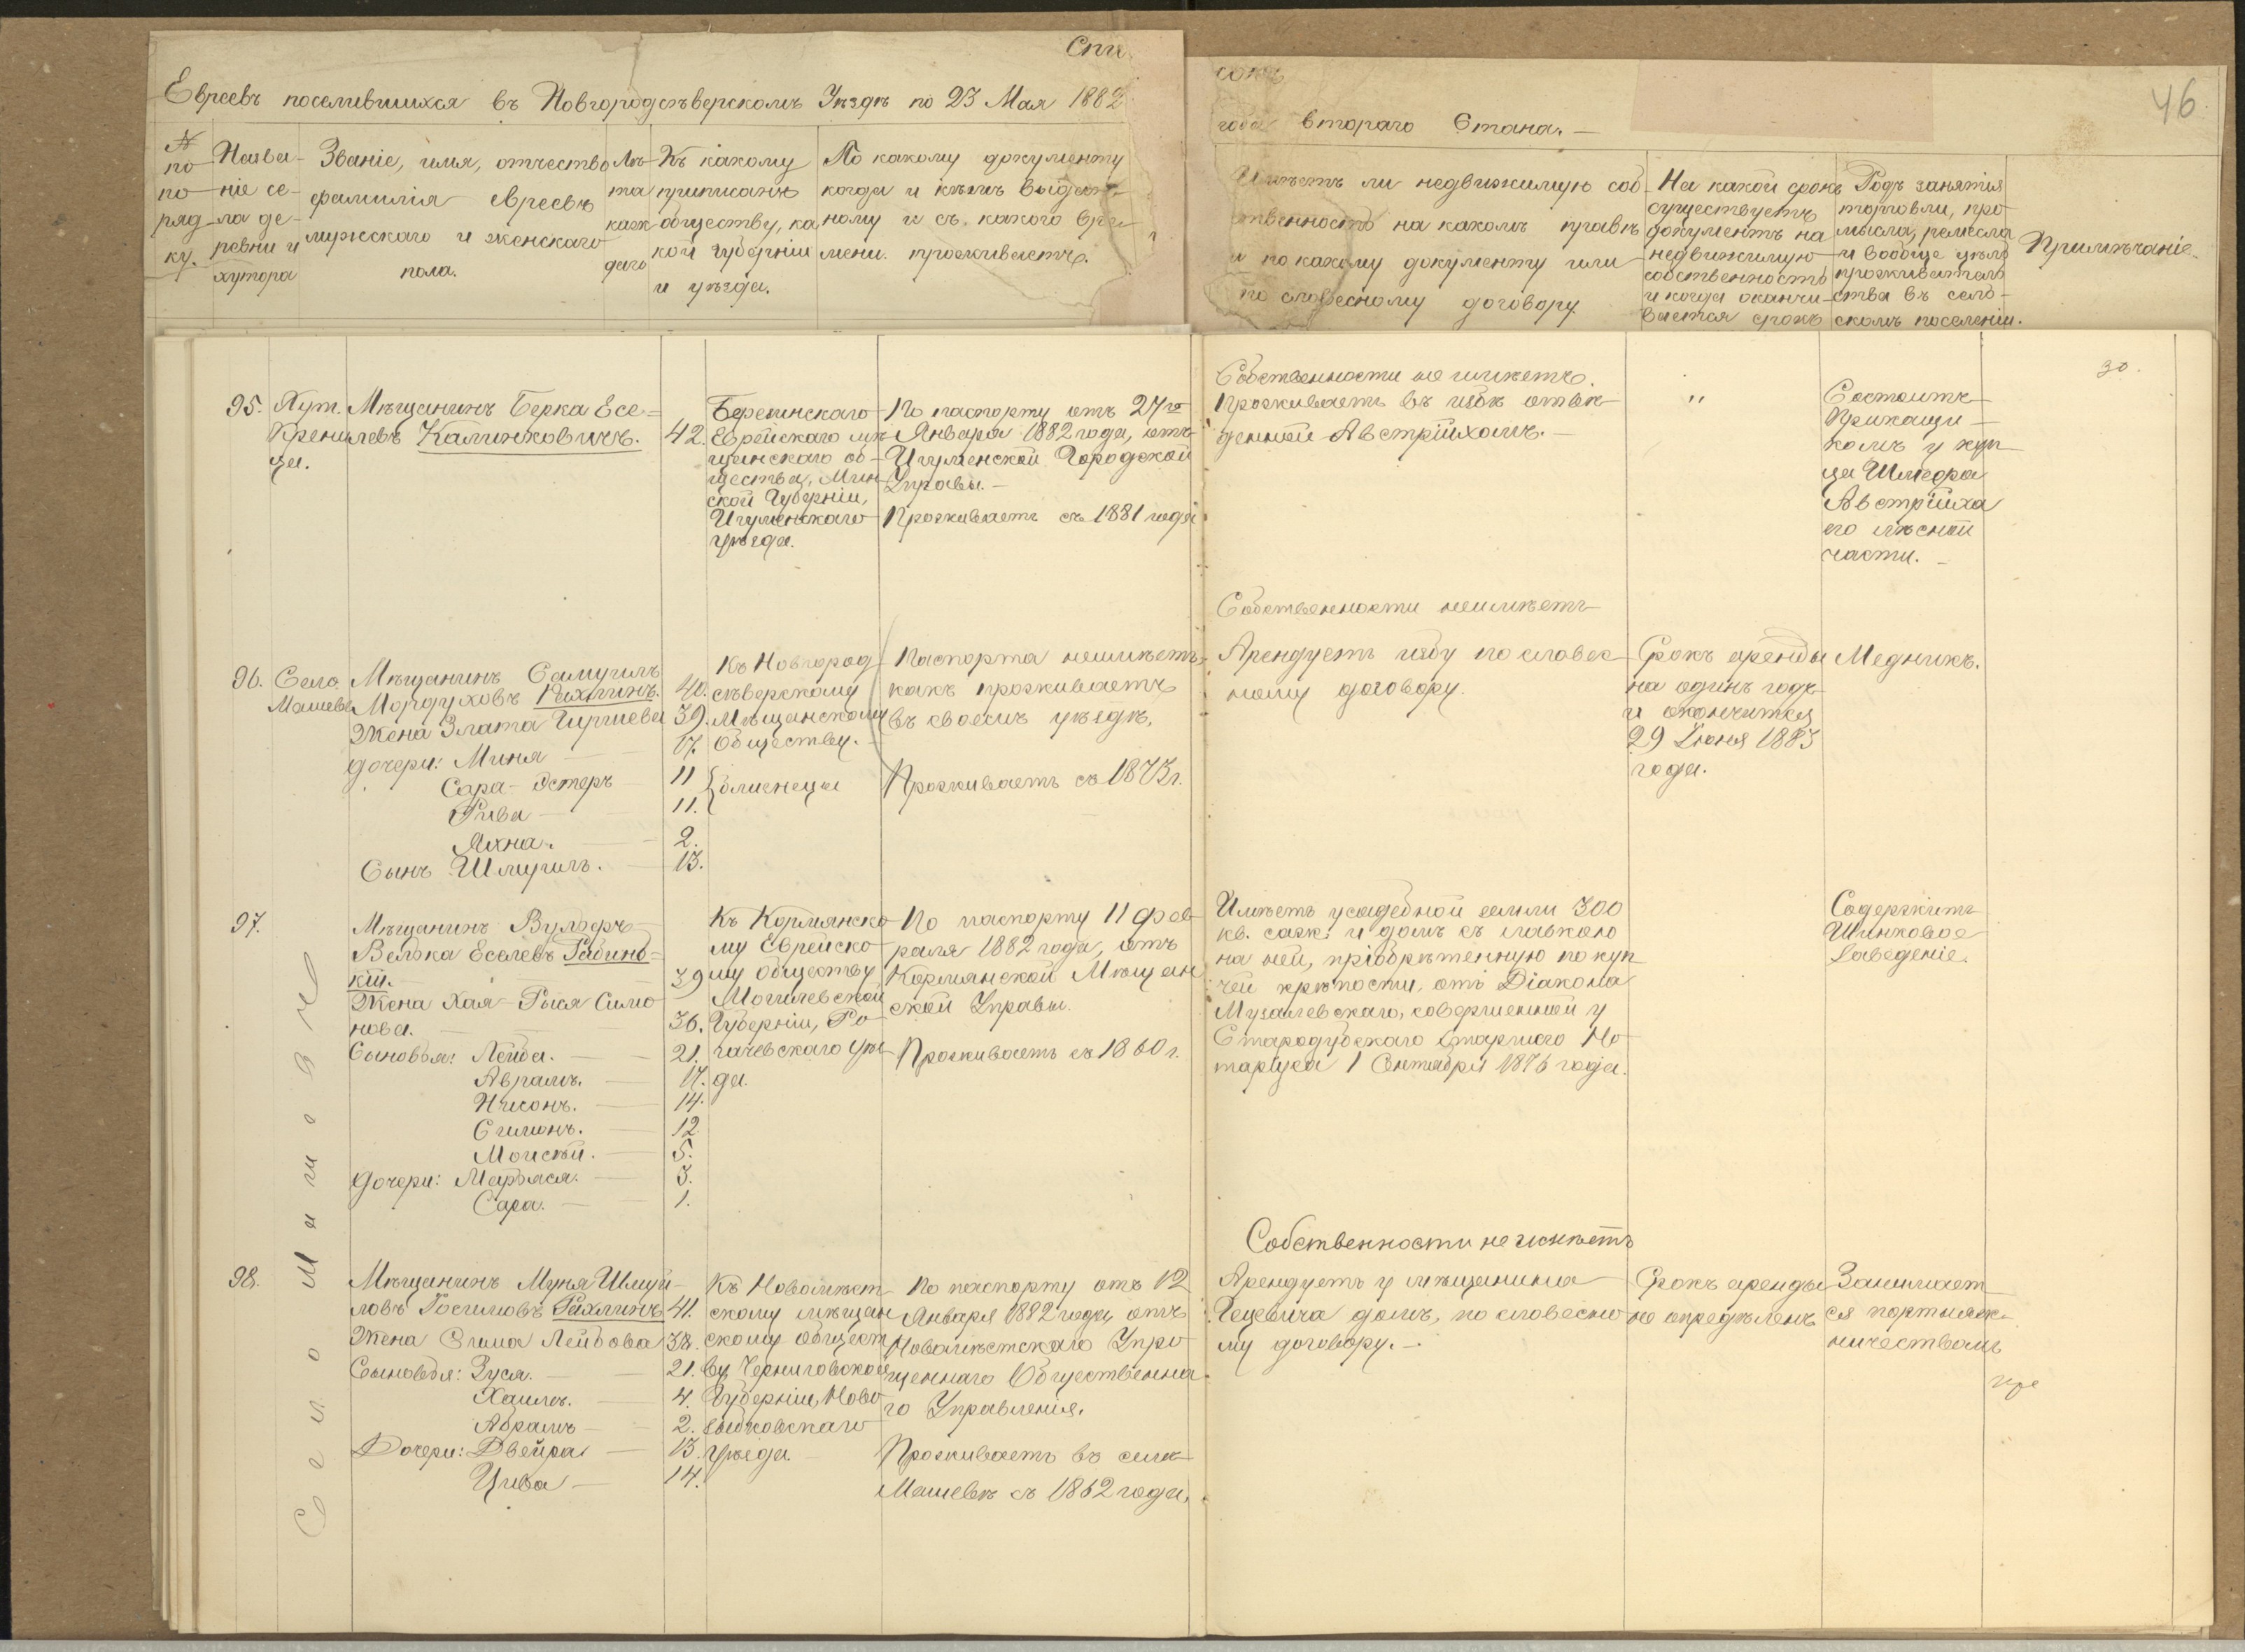 Спи
сокъ
46
Евреевъ поселившихся въ Новгородсѣверскомъ Уѣздѣ по 23 Мая 1882
года втораго Стана.
№ по поряд ку.
Назва
ніе се-
ла де-
ревни и
хутора
Званіе, имя, отчество
фамилія евреевъ
мужскаго и женскаго
пола.
Лѣ
та
каж
даго
Къ какому
приписанъ
обществу, ка
кой губерніи
и уѣзда.
По какому документу
когда и кѣмъ выдан-
ному и съ какого вре-
мени проживаетъ.
Имѣетъ ли недвижимую соб
ственность на какомъ правѣ
и по какому документу или
по словесному договору
На какой срокъ
существуетъ
документъ на
недвижимую
собственность
и когда оканчи-
вается срокъ
Родъ занятія
торговли, про
мысла, ремесла
и вообще цѣль
прожиратель
ства въ сель-
скомъ поселеніи.
Примѣчаніе.
30.
95.
Хут.
Кренид
ца.
Мѣщанинъ Берка Есе-
левъ Калинковичъ.
42.
Березинскаго
Еврейскаго мѣ
щанскаго об-
щества, Мин
ской Губерніи,
Игуменскаго
уѣзда.
По паспорту отъ 27го
Января 1882 года, отъ
Игуменской Городской
Управы. —
Проживаетъ съ 1881 года
Собственности не имѣетъ.
Проживаетъ въ избѣ отвѣ
денной Австрійхомъ. —
"
Состоитъ
Прикащи-
комъ у куп
ца Шмедра
Австрійха
его лѣсной
части. —
96.
Село
Машево
Мѣщанинъ Самуилъ
Мордуховъ Рихлинъ.
40.
Жена Злата Гиршева
39.
дочери: Миня —
17.
Сара-Эстеръ
11
Рива —
11.
близнецы
Яхна. —
2.
Сынъ Шмуилъ. —
13.
Къ Новгород
сѣверскому
Мѣщанскому
Обществу. —
Паспорта неимѣетъ,
какъ проживаетъ
въ своемъ уѣздѣ,
Проживаетъ съ 1873 г.
Собственности неимѣетъ
Арендуетъ избу по словес
ному договору.
Срокъ аренды
на одинъ годъ
и окончится
29 Іюня 1883
года.
Медникъ.
Село Машево
97.
Мѣщанинъ Вульфъ
Велька Еселевъ Рабино-
кій.
39
Жена Хая-Рыся Симо
нова. —
36.
Сыновья: Лейба. —
21.
Аврамъ. —
17.
Нисонъ. —
14.
Симонъ. —
12
Моисѣй. —
5.
Дочери: Марьяся. —
3.
Сара. —
1.
Къ Кормянско
му Еврейско
му обществу
Могилевской
Губерніи, Ро
гачевскаго уѣз
да.
По паспорту 11 фев
раля 1882 года, отъ
Кормянской Мѣщан
ской Управы.
Проживаетъ съ 1860 г.
Имѣетъ усадебной земли 300
кв. саж. и домъ съ лавкою
на ней, пріобрѣтенную по куп
чей крѣпости, отъ Діакона
Музалевскаго, совершенной у
Стародубскаго Старшаго Но
таріуса 1 Сентября 1876 года.
Содержитъ
Шинковое
Заведеніе.
98.
Мѣщанинъ Муня Шмуй-
ловъ Іосимовъ Рахлинъ
41.
Жена Сима Лейбова
38.
Сыновья: Зуся. —
21.
Хаимъ. —
4.
Абрамъ —
2.
Дочери: Двейра —
13.
Цива —
14.
Къ Новомѣст
скому мѣщан
скому общест
ву, Черниговской
Губерніи, Ново
зыбковскаго
Уѣзда —
По паспорту отъ 12
Января 1882 года, отъ
Новомѣстскаго Упро
щеннаго Общественна
го Управленія.
Проживаетъ въ селѣ
Машевѣ съ 1862 года,
Собственности не имѣетъ
Арендуетъ у мѣщанина
Гецевича домъ, по словесно
му договору. —
Срокъ аренды
не опредѣленъ
Занимает
ся портняж-
ничествомъ